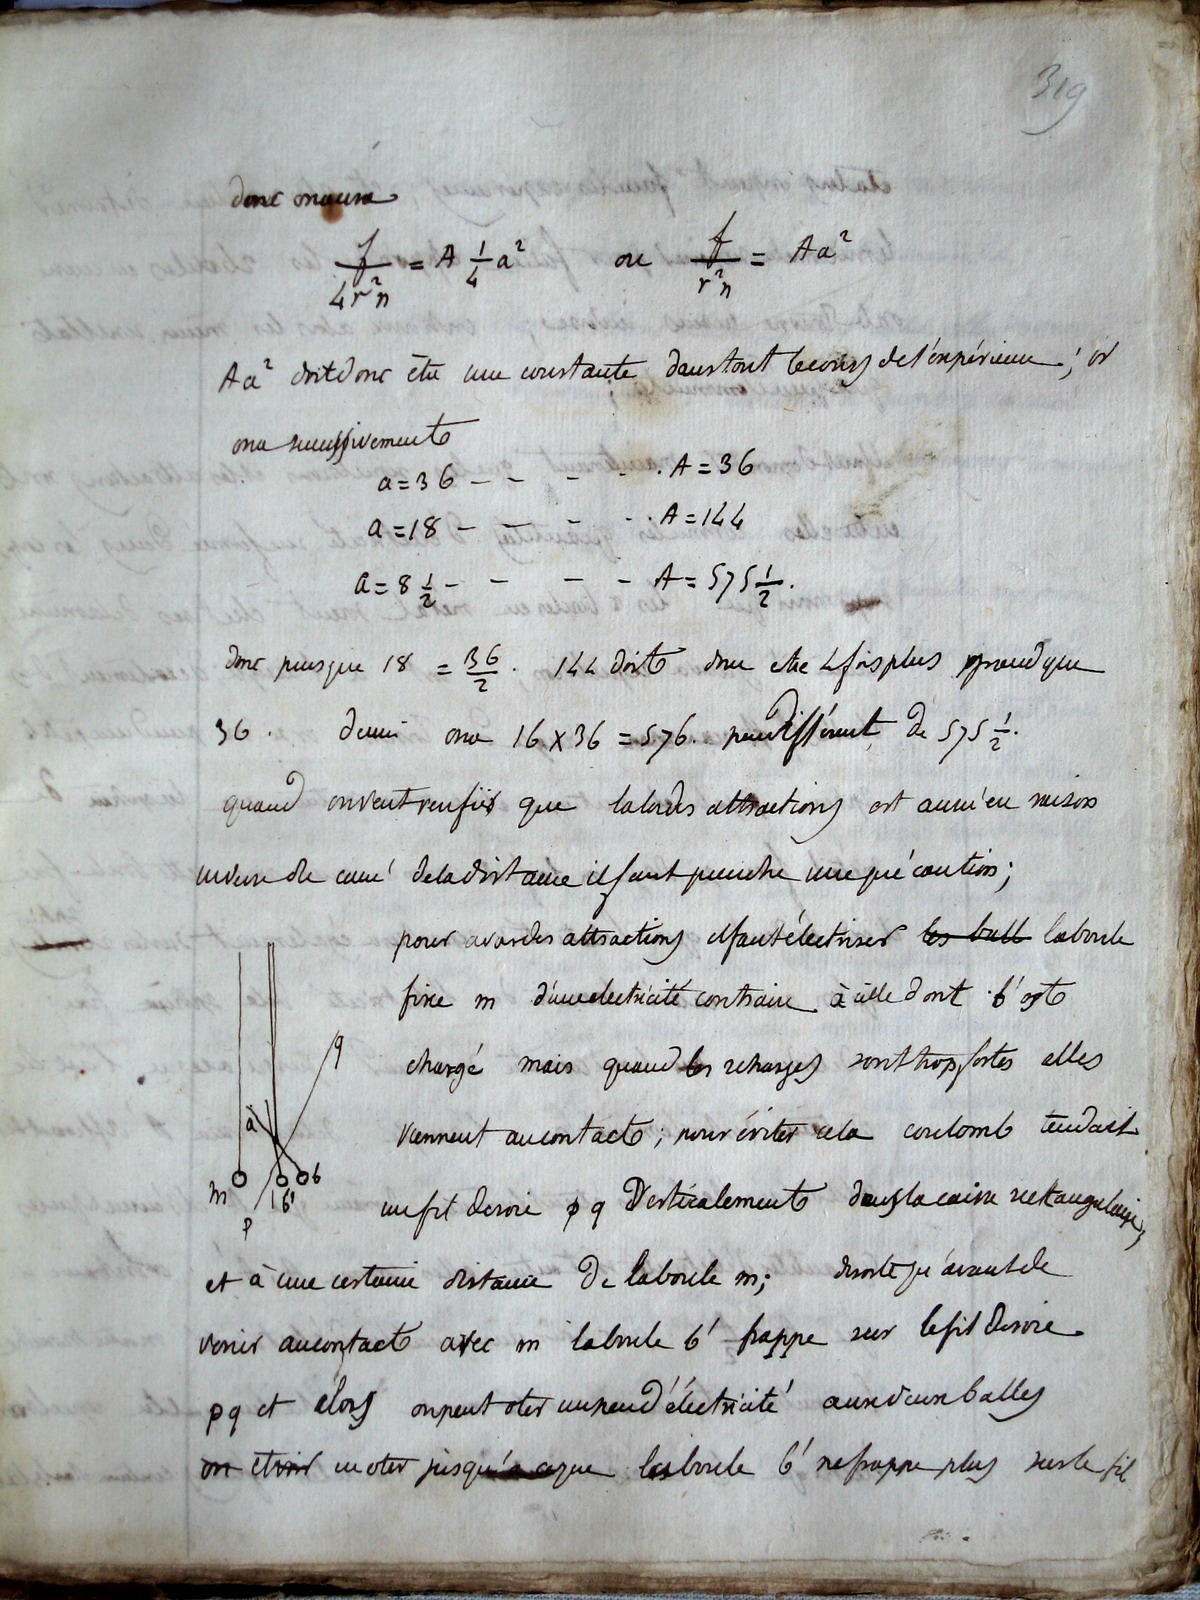 319
donc on aura
f/4r²n = A 1/4 a² ou f/r²n = Aa²
Aa² doit donc être une constante dans tout le cours de l'expérience; or
on a successivement
a = 36 - - - - . A = 36
a = 18 - - - - . A = 144
a = 8 1/2 - - - - A = 575 1/2.
donc puisque 18 = 36/2 . 144 doit donc etre 4 fois plus grand que
36 . de mêm on a 16 x 36 = 576 . peu différent de 575 1/2.
quand on veut verifier que la loi des attractions est aussi en raison
inverse du carré de la distance il faut prendre une précaution;
pour avoir des attractions il faut électriser les ball la boule
fixe m d'une electricité contraire à celle dont b' est
chargé mais quand les charges sont trop fortes elles
viennent au contact; pour éviter cela coulomb tendait
un fil de soie p q verticalement dans la caisse rectangulaire,
et à une certaine distance de la boule m; de sorte qu'avant de
venir au contact avec m la boule b' frappe sur le fil de soie
p q et alors on peut oter un peu d'électricité aux deux balles
on et en oter jusqu'à ce que la boule b' ne frappe plus sur le fil
q
a
m b' b
p